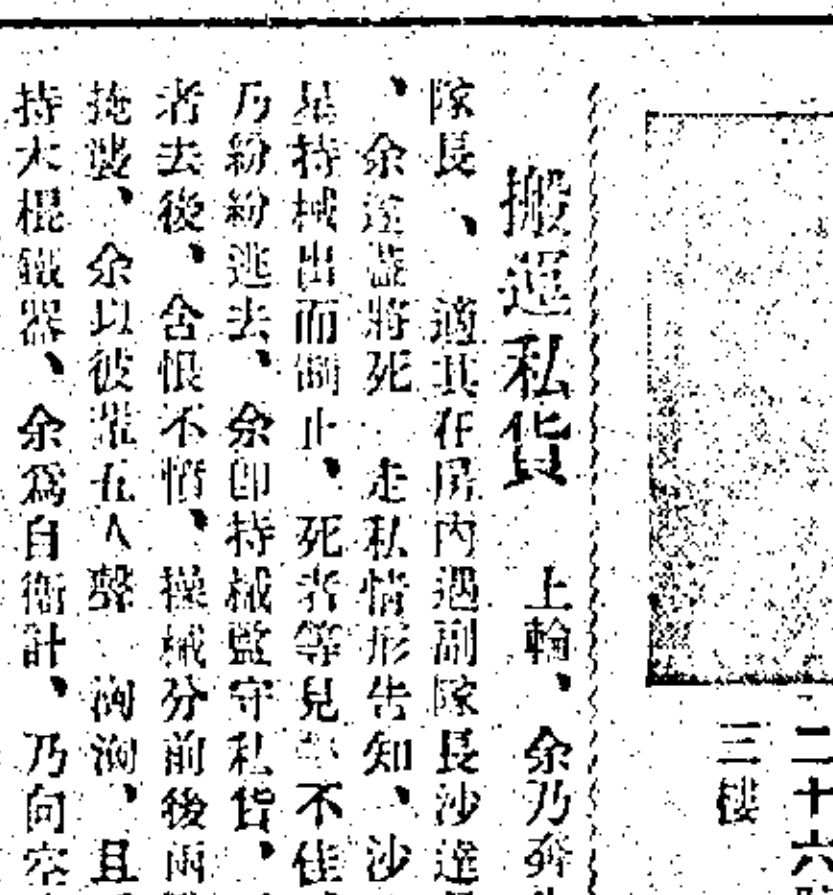 二十六
三樓
搬運私貨　上輪、余乃奔
隊長、適其在房內遇副隊長沙達
、余遂盡將死　走私情形告知、沙
是持械出而制止、死者等見　不佳
乃紛紛逃去、余卽持械監守私貨、
者去後、含恨不憤、操械分前後兩
掩襲、余以彼輩五人聲　洶洶、且
持大棍鐵器、余爲自衞計、乃向空